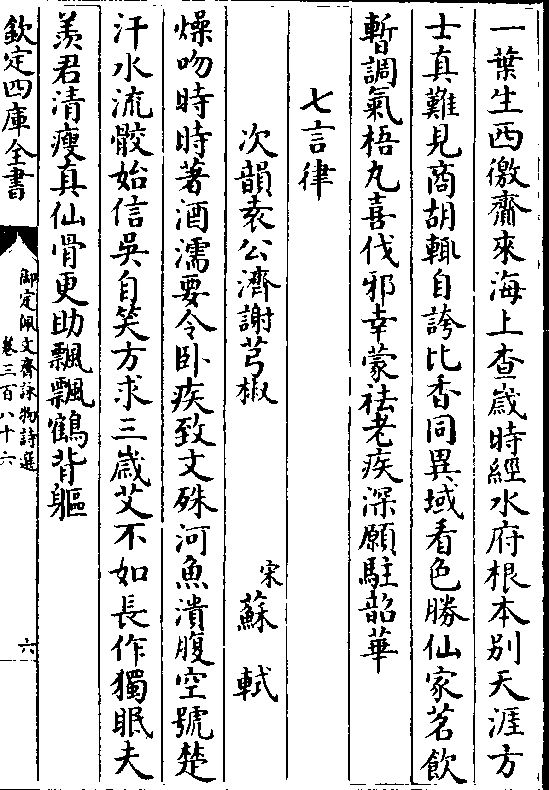 一葉生西徼齎來海上查歲時經水府根本别天涯方
士真難見商胡輒自誇比香同異域看色勝仙家茗飲
暫調氣梧丸喜伐邪幸蒙袪老疾深願駐韶華
七言律
次韻袁公濟謝芎椒
宋蘇軾
燥吻時時著酒濡要令卧疾致文殊河魚潰腹空號楚
汗水流骹始信吳自笑方求三歲艾不如長作獨眠夫
羨君清瘦真仙骨更助飄飄鶴背軀
欽定四庫全書
御定佩文齋詠物詩選
卷三百八十六
六